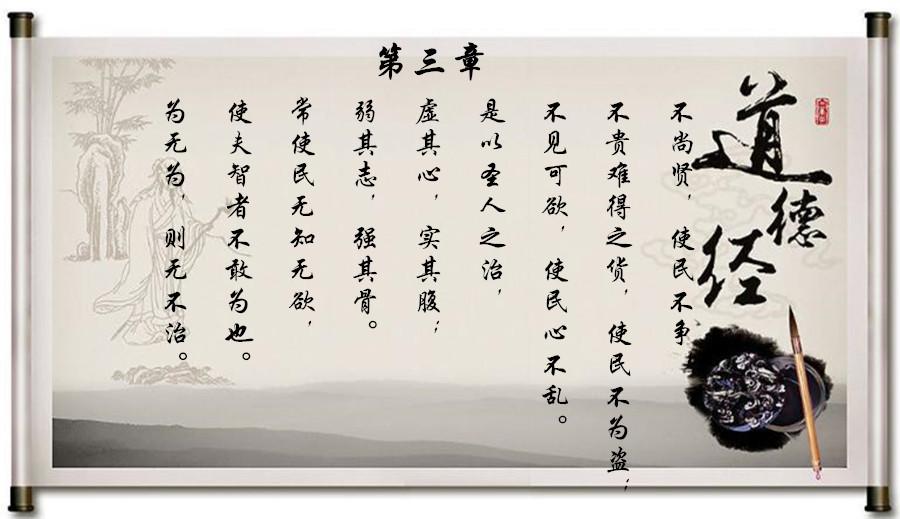 道德经
第三章
不尚贤，使民不争
不贵难得之货，使民不为盗；
不见可欲，使民心不乱。
是以圣人之治，
虚其心，实其腹；
弱其志，强其骨。
常使民无知无欲，
使夫智者不敢为也。
为无为，则无不治。